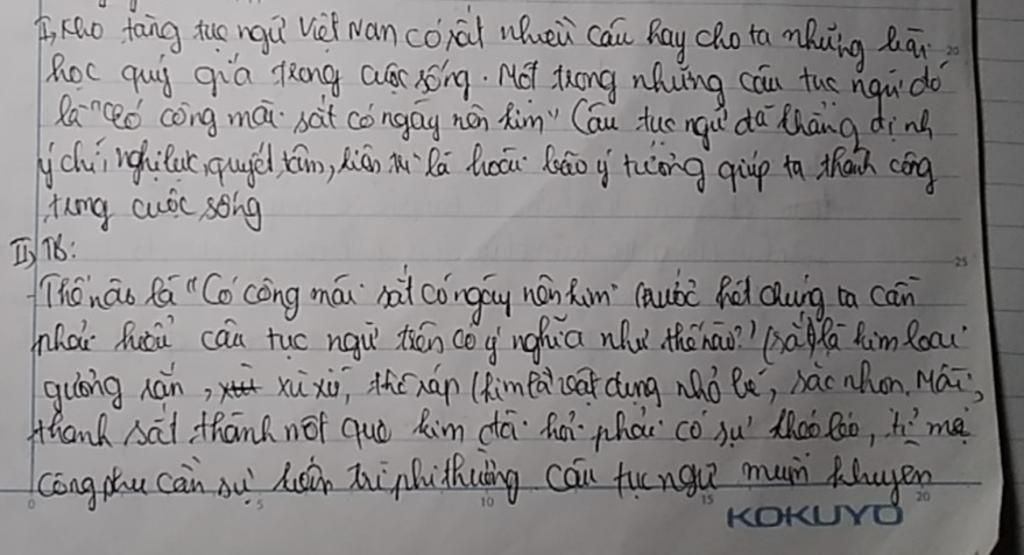 I, Kho tàng tục ngữ Việt Nam có rất nhiều câu hay cho ta những bài
học quý giá trong cuộc sống. Một trong những câu tục ngữ đó
là "Có công mài sắt có ngày nên kim" Câu tục ngữ đã khẳng định
ý chí, nghị lực, quyết tâm, kiên trì là hoài bão ý tưởng giúp ta thành công
trong cuộc sống
II, TB:
-Thế nào là "Có công mài sắt có ngày nên kim" (trước hết chúng ta cần
phải hiểu câu tục ngữ trên có ý nghĩa như thế nào?) (sắt) là kim loại
, xù xì, thô ráp (kim là vật dụng nhỏ bé, sắc nhọn. Mài
thanh sắt thành một que kim đòi hỏi phải có sự khéo léo, tỉ mỉ
công phu cần sự kiên trì phi thường Câu tục ngữ muốn khuyên
0 5 10 15 20
20
25
KOKUYO